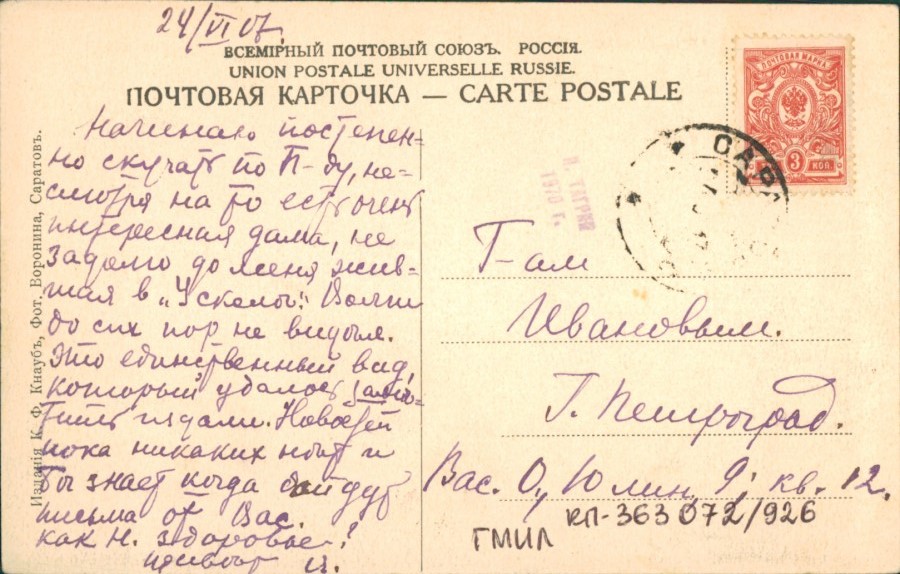 24/VI 07.
ВСЕМІРНЫЙ ПОЧТОВЫЙ СОЮЗЪ. РОССІЯ.
UNION POSTALE UNIVERSELLE RUSSIE.
ПОЧТОВАЯ КАРТОЧКА — CARTE POSTALE
Изданія К. Ф. Кнаубъ, Фот. Воронина, Саратовъ.
Начинаю постепен-
но скучать по П-ду, не-
смотря на то есть очень
интересная дама, не
задолго до меня жив-
шая в Волги
до сих пор не видала.
Это единственный вид,
который удалось
Новостей
пока никаких нет и
Бг знает когда дойдут
письма от Вас.
как н. здоровье!
привет
ПОЧТОВАЯ МАРКА
3 КОП.
САР
1970 г.
Г-ам
Ивановым.
Г. Петроград.
Вас. О., 10 лин, 9, кв. 12.
ГМИЛ КП-363072/926